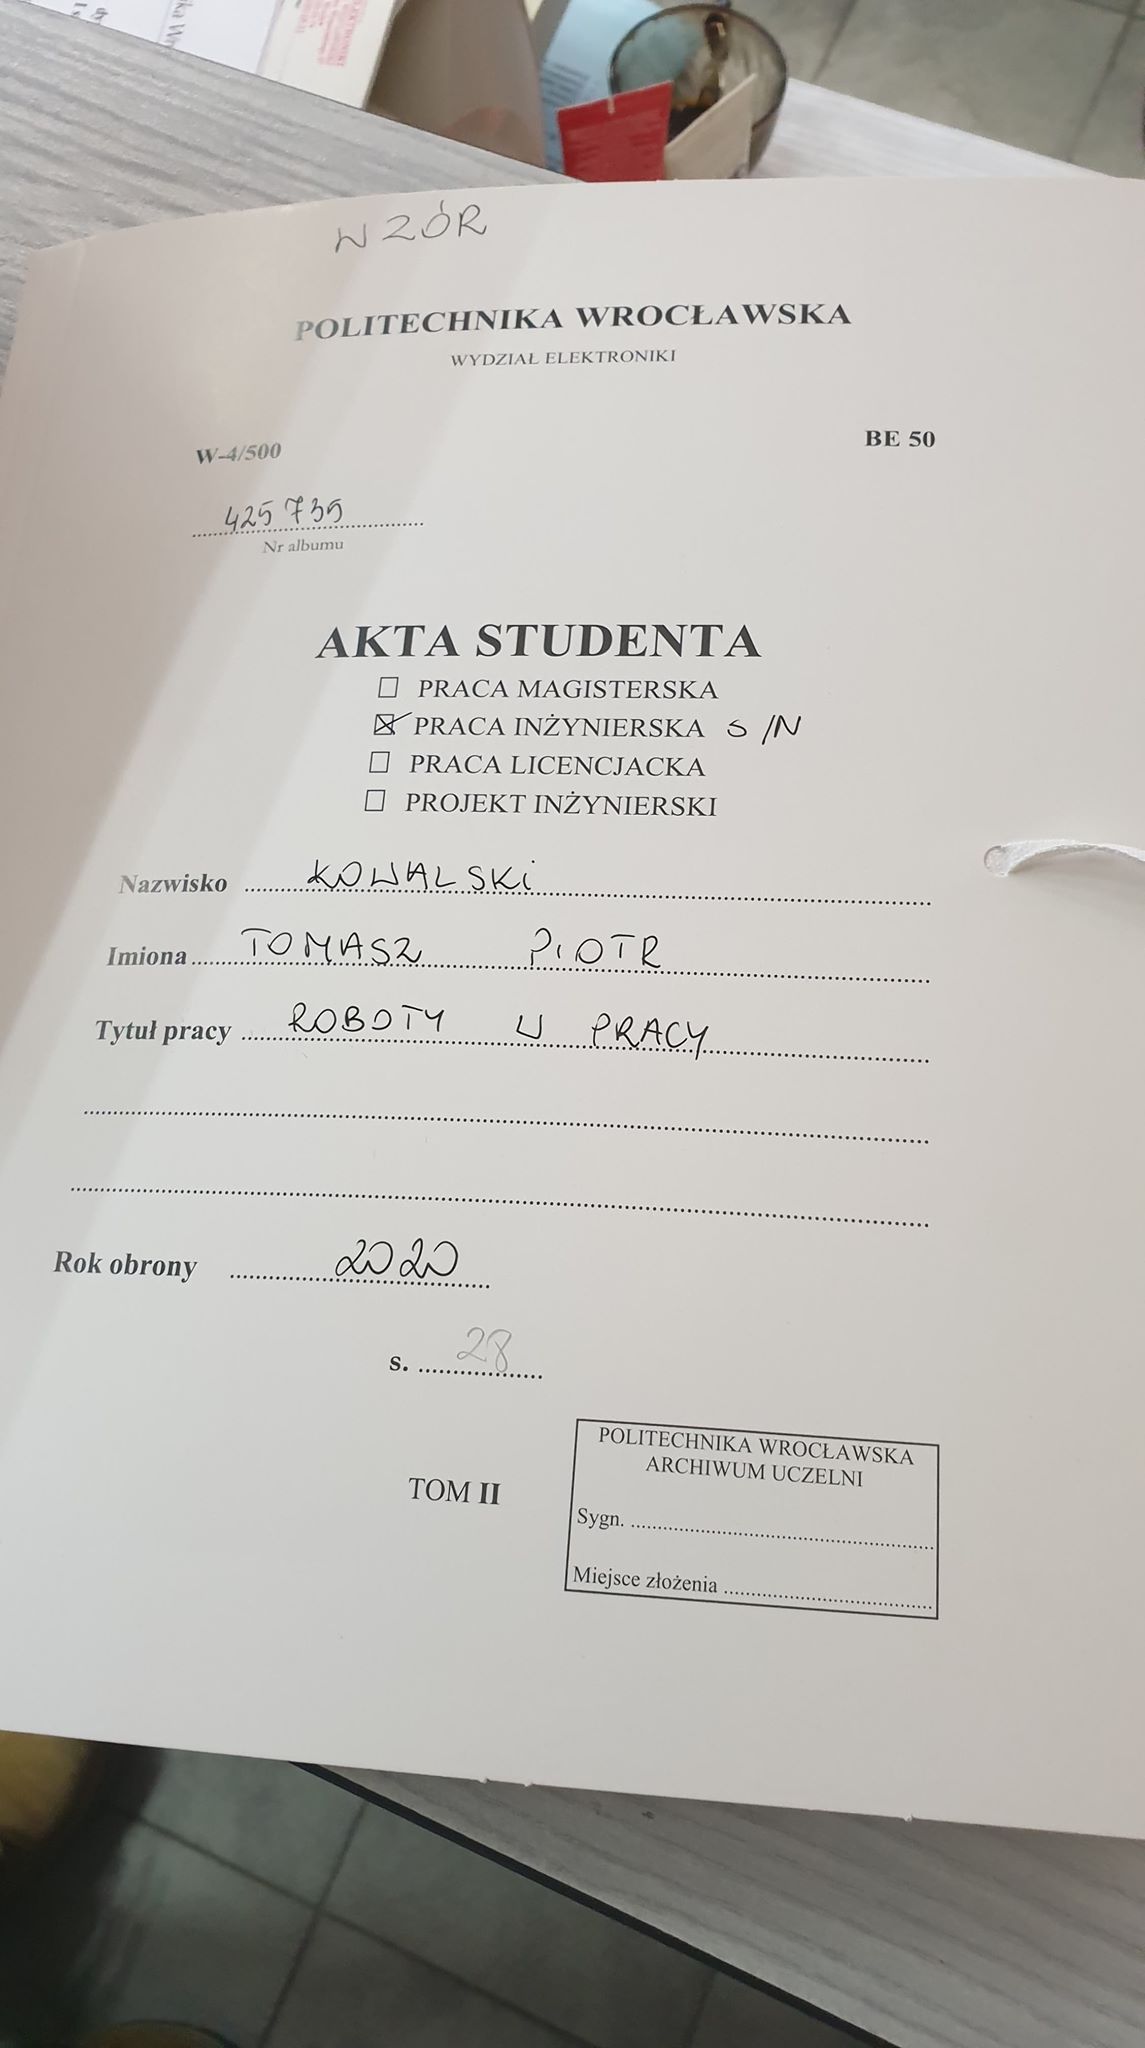 WZÓR
POLITECHNIKA WROCŁAWSKA
WYDZIAŁ ELEKTRONIKI
W-4/500
BE 50
425735
Nr albumu
AKTA STUDENTA
☐ PRACA MAGISTERSKA
☒ PRACA INŻYNIERSKA S/N
☐ PRACA LICENCJACKA
☐ PROJEKT INŻYNIERSKI
Nazwisko KOWALSKi
Imiona TOMASZ PIOTR
Tytuł pracy ROBOTY W PRACY
Rok obrony 2020
s. 28
TOM II
POLITECHNIKA WROCŁAWSKA
ARCHIWUM UCZELNI
Sygn.
Miejsce złożenia